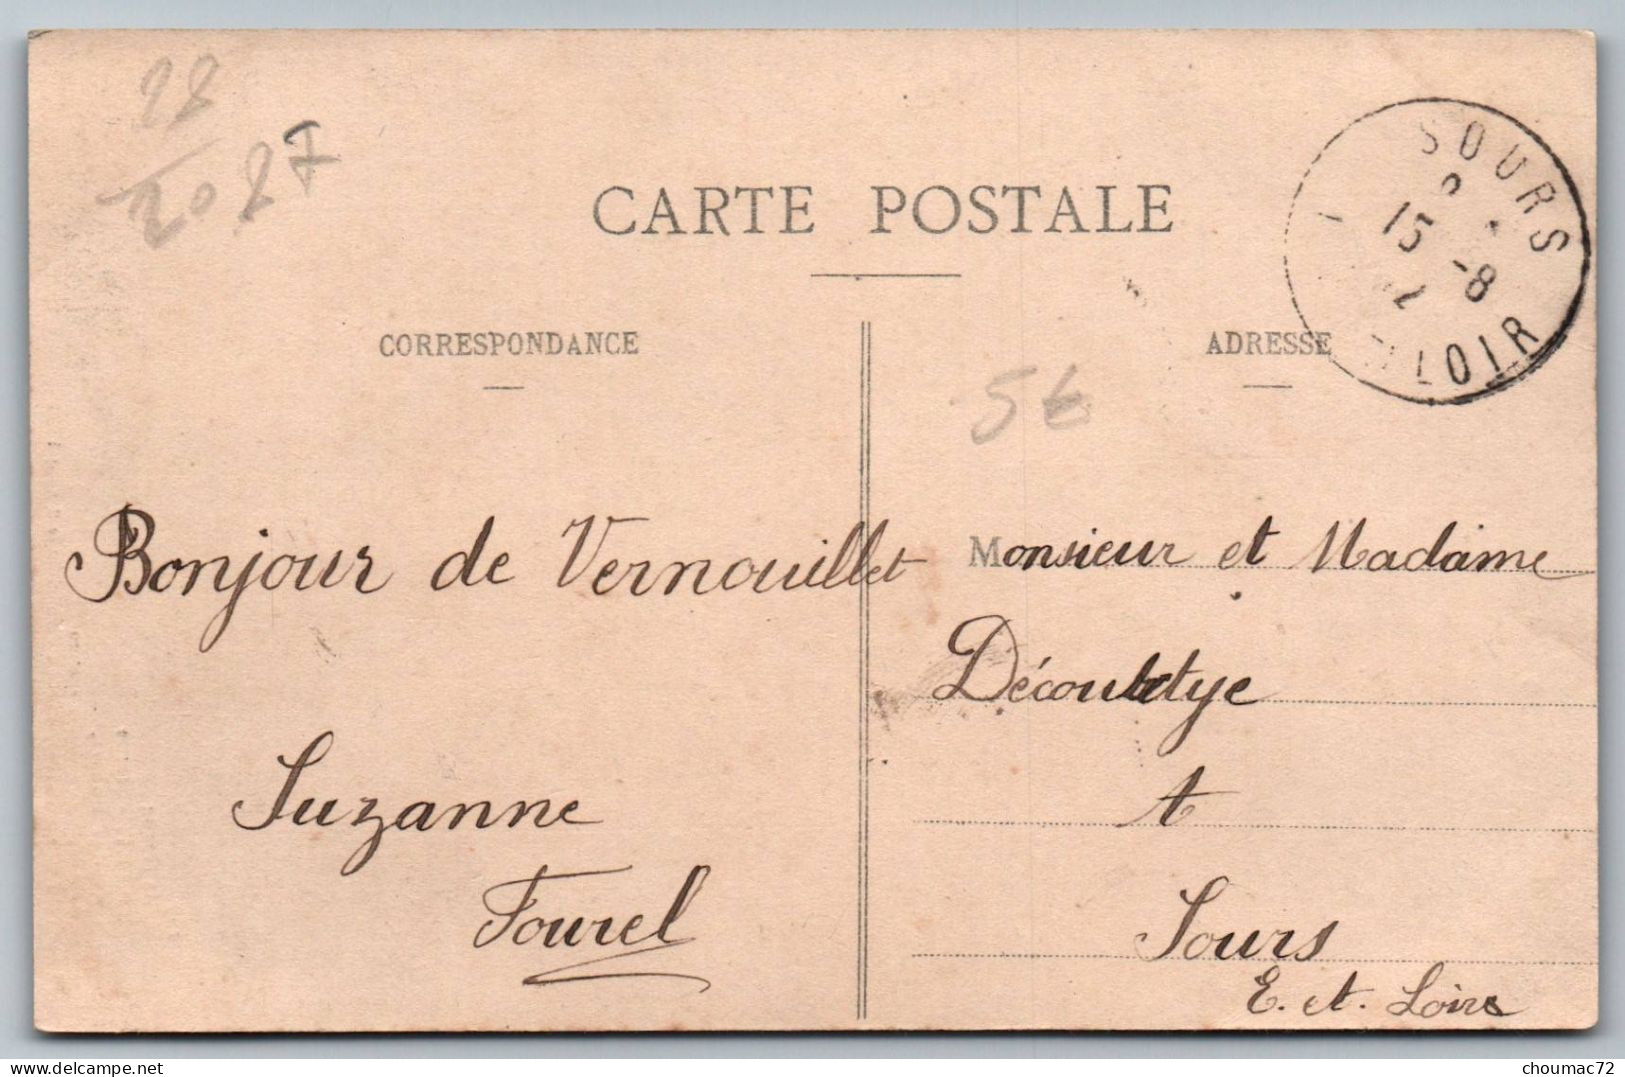 28
20 27
CARTE POSTALE
SOURS
15 -8
LOIR
CORRESPONDANCE
ADRESSE
5€
Bonjour de Vernouillet
Suzanne
Fourel
Monsieur et Madame
à
Sours
E. et. Loire
choumac72